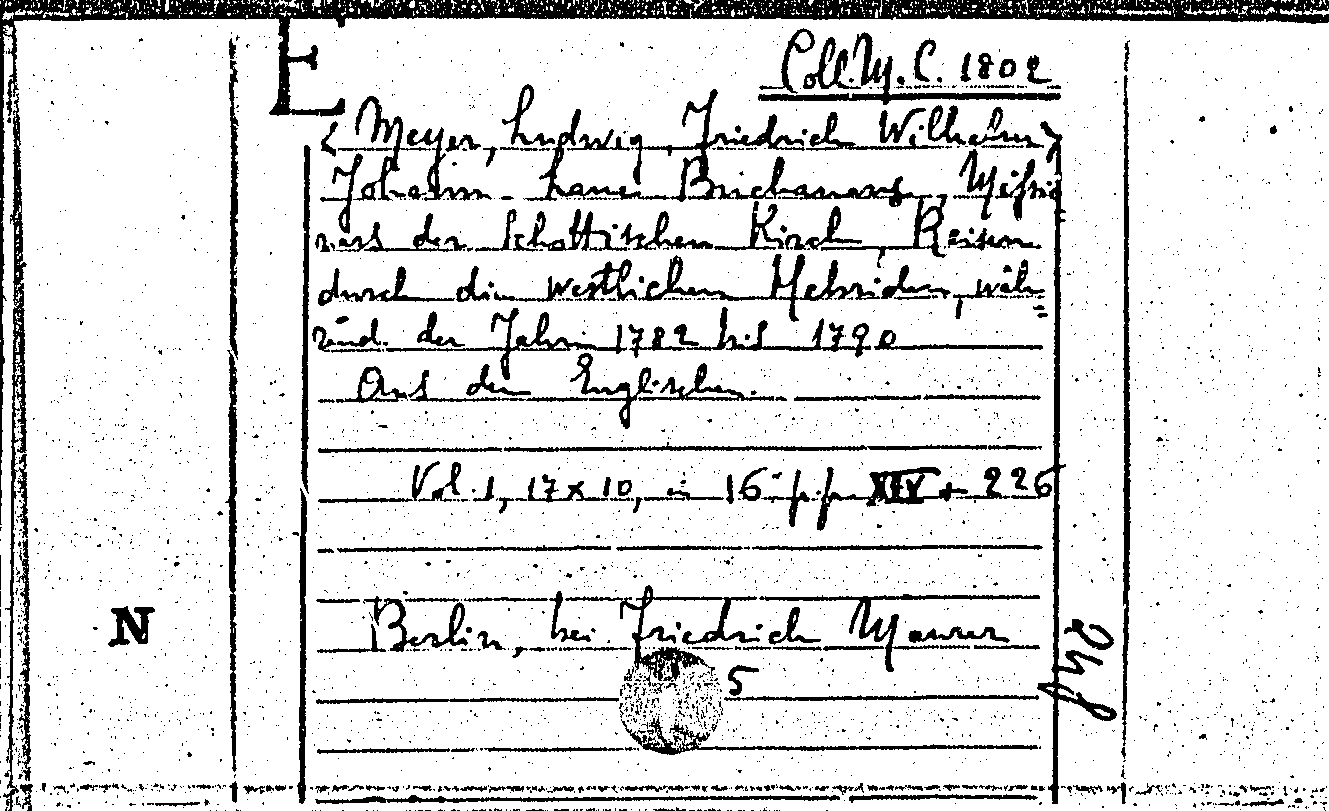 E
Coll. M. C. 1802
<Meyer, Ludwig, Friedrich Wilhelm>
Johann Lane Buchanans, Missio=
nars der Schottischen Kirche, Reisen
durch die westlichen Hebriden, wäh=
rend der Jahre 1782 bis 1790
Aus dem Englischen.
Vol. 1, 17 x 10, in 16° pp. XIV + 226
N
Berlin, bei Friedrich Maurer
5